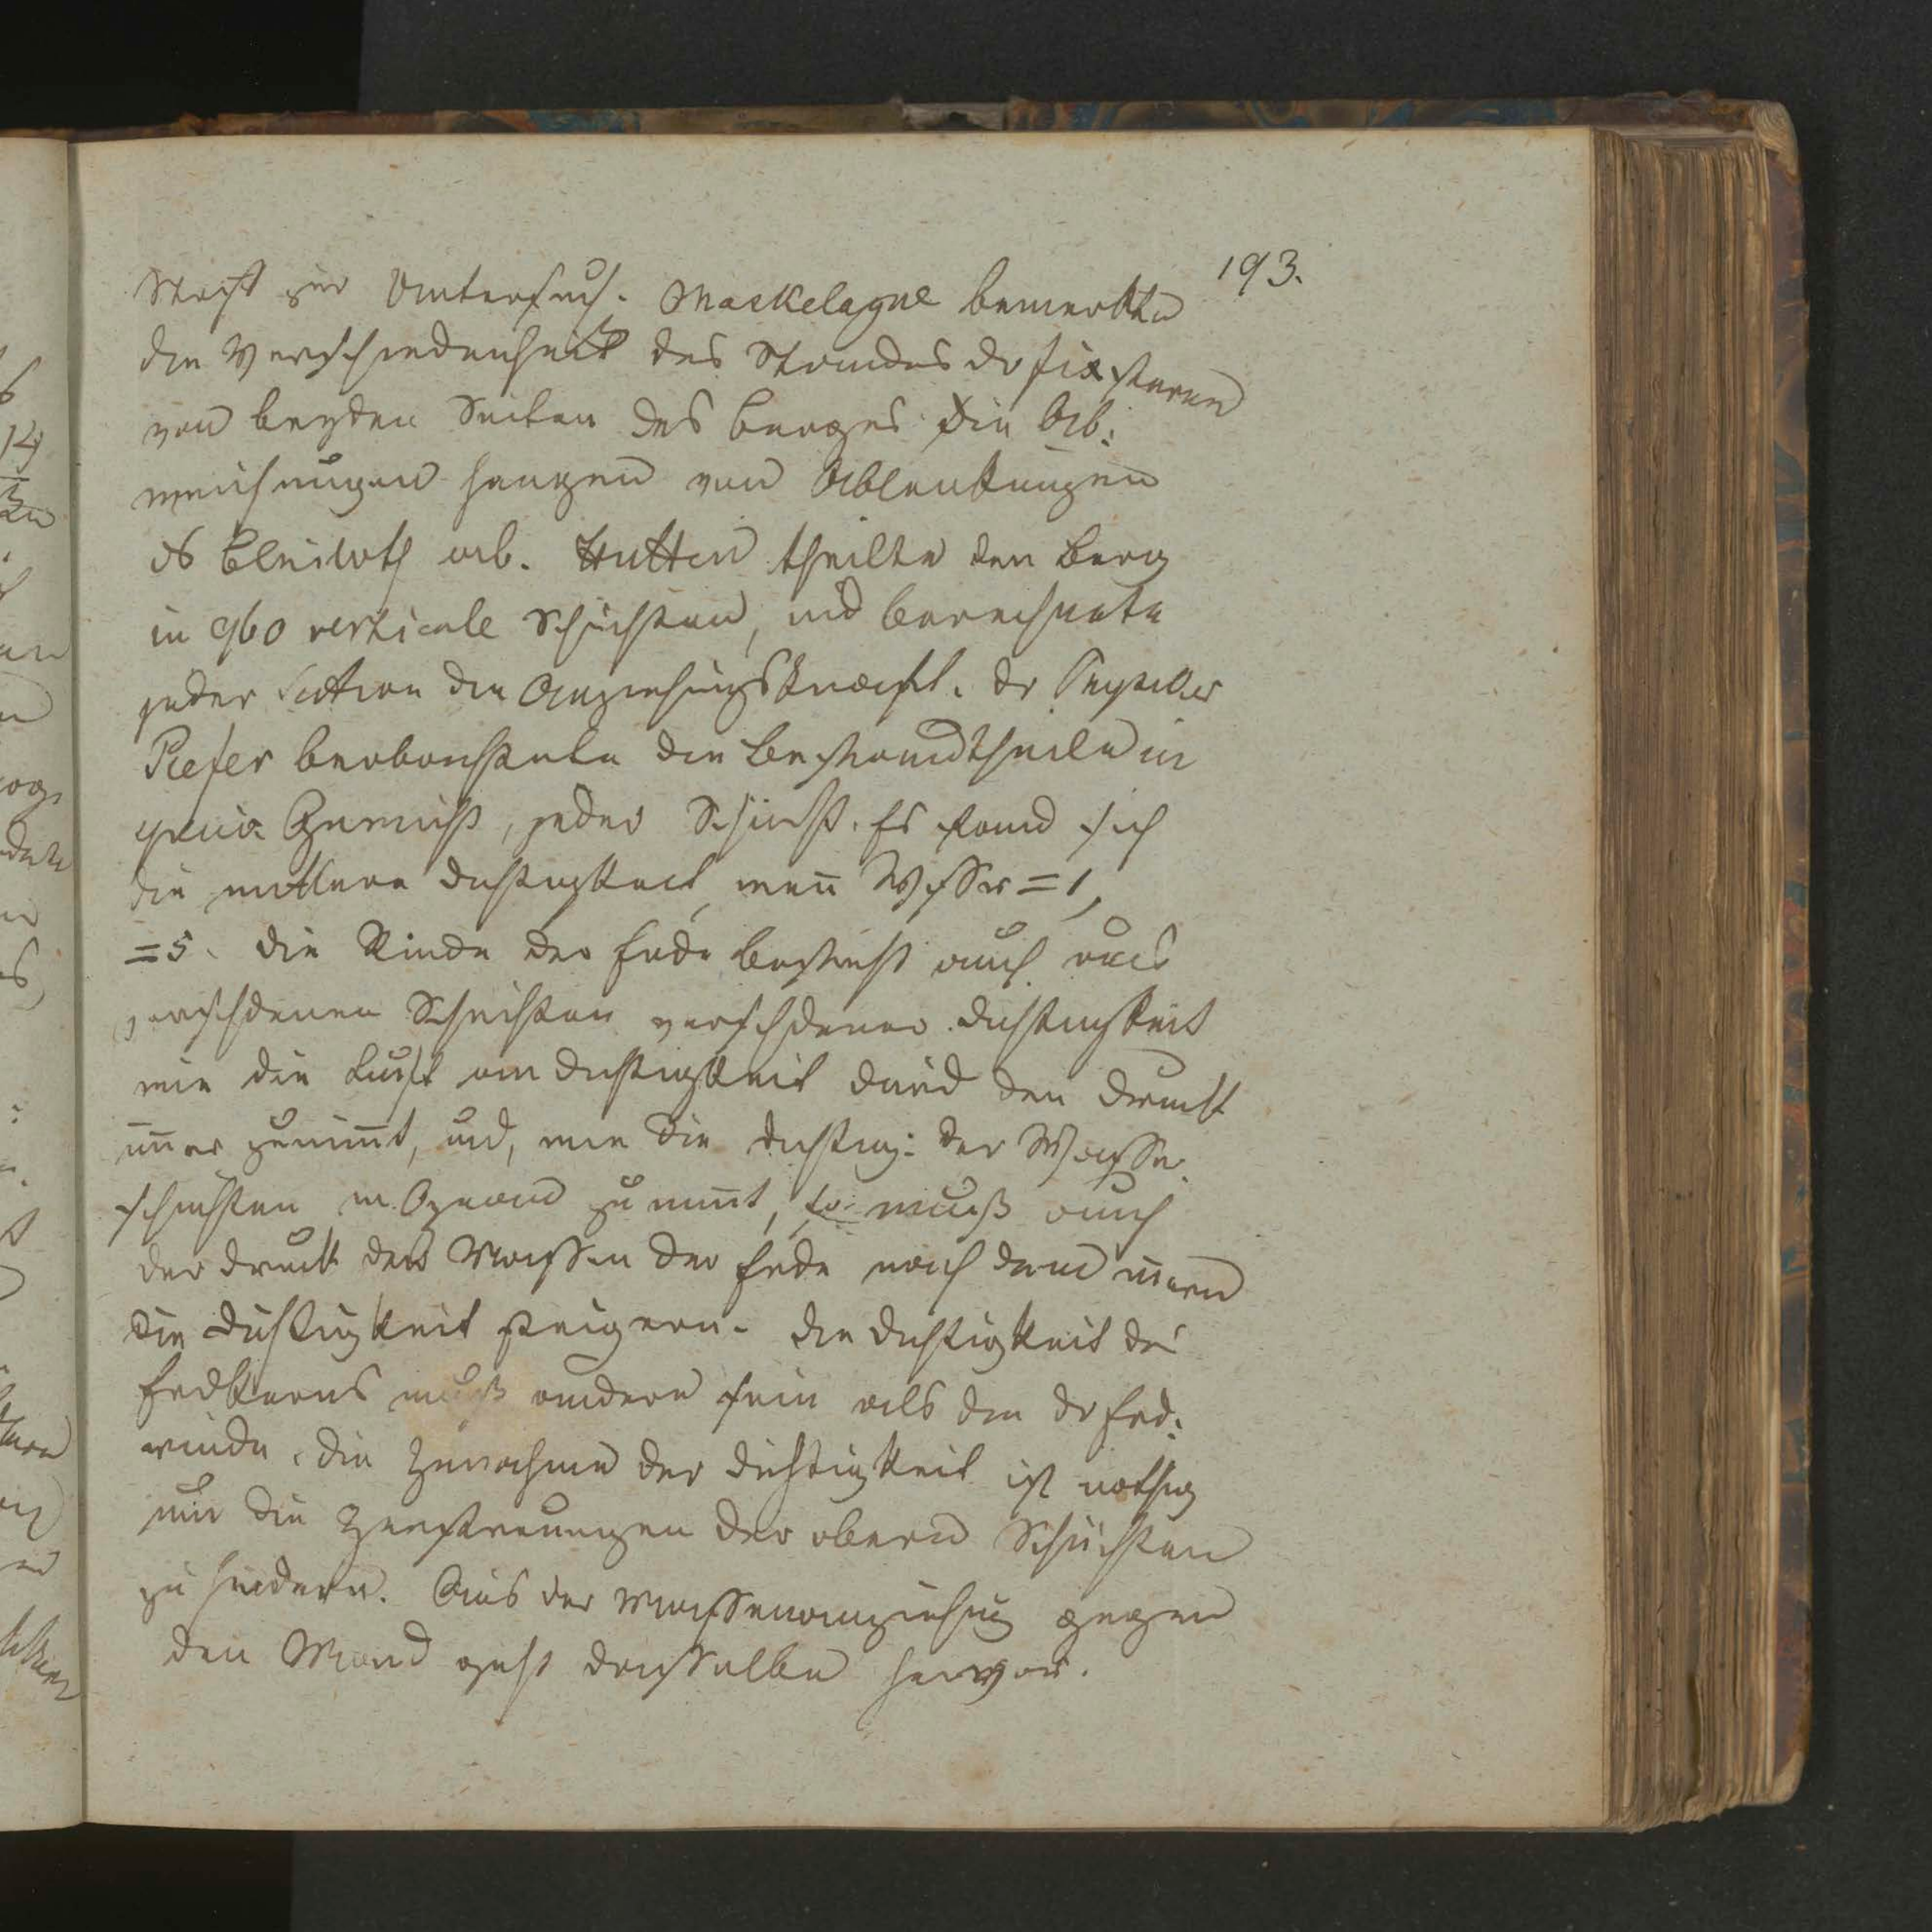 193.
Macht zur Untersuch. Maskelayne bemerkte
die Verschiedenheit des Standes dr fixsternen
von beyden Seiten des Berges die Ab:
weichungen hangen von Ablenkungen
ds Bleiloth ab. Hutten theilte den Berg
in 960 verticale Schichten, und berechnete
jeder Section die Anziehungskraft. Dr
beobachtete die Bestandtheile in
Gewicht, jeder Schicht. Es fand sich
die mittlere dichtigkeit, wenn Wasser = 1,
= 5. die Rinde der Erde besteht auch aus
verschdenen Schichten verschdener dichtigkeit
wie die Luft an dichtigkeit durch den druck
im̄er zunim̄t, und, wie die dichtig: der Wasser
schichten im Ozean zunim̄t, so muß auch
der druck der Massen der Erde nach dem in̄ern
die dichtigkeit steigern. die dichtigkeit des
Erdkerns muß andere sein als die dr Erd:
rinde. die Zunahme der dichtigkeit ist nothig
um die Zerstreuungen der obern Schichten
zu hindern. Aus der Massenanziehung gegen
den Mond geht dasselbe hervor.